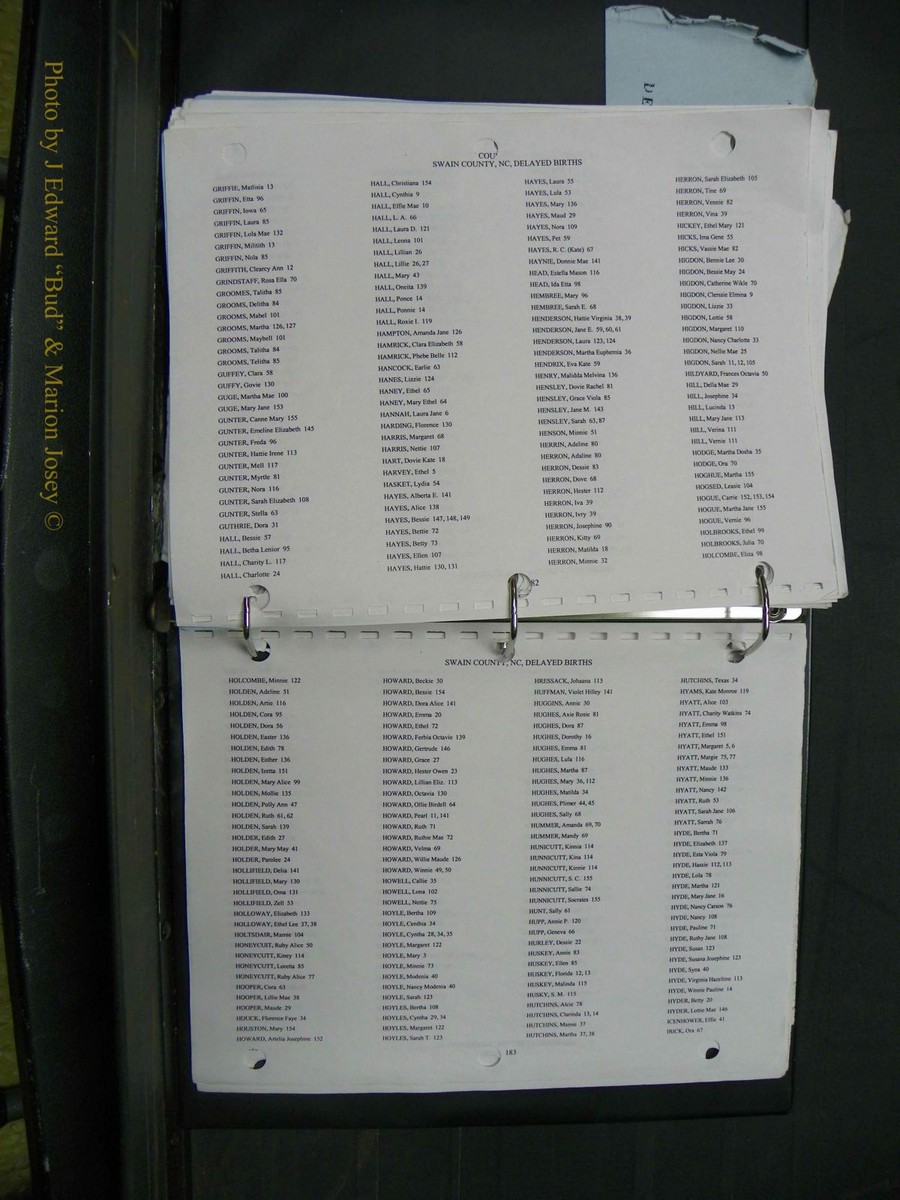 Photo by J Edward "Bud" & Marion Josey ©
COU
SWAIN COUNTY, NC, DELAYED BIRTHS
GRIFFIE, Matlisia 13
GRIFFIN, Etta 96
GRIFFIN, Iowa 65
GRIFFIN, Laura 85
GRIFFIN, Lola Mae 132
GRIFFIN, Militith 13
GRIFFIN, Nola 85
GRIFFITH, Clearcy Ann 12
GRINDSTAFF, Rosa Ella 70
GROOMES, Talitha 85
GROOMS, Delitha 84
GROOMS, Mabel 101
GROOMS, Martha 126, 127
GROOMS, Maybell 101
GROOMS, Talitha 84
GROOMS, Telitha 85
GUFFEY, Clara 58
GUFFY, Govie 130
GUGE, Martha Mae 100
GUGE, Mary Jane 153
GUNTER, Canne Mary 155
GUNTER, Emeline Elizabeth 145
GUNTER, Freda 96
GUNTER, Hattie Irene 113
GUNTER, Mell 117
GUNTER, Myrtle 81
GUNTER, Nora 116
GUNTER, Sarah Elizabeth 108
GUNTER, Stella 63
GUTHRIE, Dora 31
HALL, Bessie 57
HALL, Betha Lenior 95
HALL, Charity L. 117
HALL, Charlotte 24
HALL, Christiana 154
HALL, Cynthia 9
HALL, Effie Mae 10
HALL, L. A. 66
HALL, Laura D. 121
HALL, Leona 101
HALL, Lillian 26
HALL, Lillie 26, 27
HALL, Mary 43
HALL, Oneita 139
HALL, Ponce 14
HALL, Ponnie 14
HALL, Roxie I. 119
HAMPTON, Amanda Jane 126
HAMRICK, Clara Elizabeth 58
HAMRICK, Phebe Belle 112
HANCOCK, Earlie 63
HANES, Lizzie 124
HANEY, Ethel 65
HANEY, Mary Ethel 64
HANNAH, Laura Jane 6
HARDING, Florence 130
HARRIS, Margaret 68
HARRIS, Nettie 107
HART, Dovie Kate 18
HARVEY, Ethel 5
HASKET, Lydia 54
HAYES, Alberta E. 141
HAYES, Alice 138
HAYES, Bessie 147, 148, 149
HAYES, Bettie 72
HAYES, Betty 73
HAYES, Ellen 107
HAYES, Hattie 130, 131
HAYES, Laura 55
HAYES, Lula 53
HAYES, Mary 136
HAYES, Maud 29
HAYES, Nora 109
HAYES, Pet 59
HAYES, R. C. (Kate) 67
HAYNIE, Donnie Mae 141
HEAD, Estella Mason 116
HEAD, Ida Etta 98
HEMBREE, Mary 96
HEMBREE, Sarah E. 68
HENDERSON, Hattie Virginia 38, 39
HENDERSON, Jane E. 59, 60, 61
HENDERSON, Laura 123, 124
HENDERSON, Martha Euphemia 36
HENDRIX, Eva Kate 59
HENRY, Malidda Melvina 136
HENSLEY, Dovie Rachel 81
HENSLEY, Grace Viola 85
HENSLEY, Jane M. 143
HENSLEY, Sarah 63, 87
HENSON, Minnie 51
HERRIN, Adeline 80
HERRON, Adaline 80
HERRON, Dessie 83
HERRON, Dove 68
HERRON, Hester 112
HERRON, Iva 39
HERRON, Ivry 39
HERRON, Josephine 90
HERRON, Kitty 69
HERRON, Matilda 18
HERRON, Minnie 32
HERRON, Sarah Elizabeth 105
HERRON, Tine 69
HERRON, Vennie 82
HERRON, Vina 39
HICKEY, Ethel Mary 121
HICKS, Ima Gene 55
HICKS, Vassie Mae 82
HIGDON, Bennie Lee 30
HIGDON, Bessie May 24
HIGDON, Catherine Wikle 70
HIGDON, Clerssie Elmina 9
HIGDON, Lizzie 33
HIGDON, Lottie 58
HIGDON, Margaret 110
HIGDON, Nancy Charlotte 33
HIGDON, Nellie Mae 25
HIGDON, Sarah 11, 12, 105
HILDYARD, Frances Octavia 50
HILL, Della Mae 29
HILL, Josephine 34
HILL, Lucinda 13
HILL, Mary Jane 113
HILL, Verina 111
HILL, Vernie 111
HODGE, Martha Dosha 35
HODGE, Ora 70
HOGHUE, Martha 155
HOGSED, Leasie 104
HOGUE, Carrie 152, 153, 154
HOGUE, Martha Jane 155
HOGUE, Vernie 96
HOLBROOKS, Ethel 99
HOLBROOKS, Julia 70
HOLCOMBE, Eliza 98
82
SWAIN COUNTY, NC, DELAYED BIRTHS
HOLCOMBE, Minnie 122
HOLDEN, Adeline 51
HOLDEN, Artie 116
HOLDEN, Cora 95
HOLDEN, Dora 56
HOLDEN, Easter 136
HOLDEN, Edith 78
HOLDEN, Esther 136
HOLDEN, Iretta 151
HOLDEN, Mary Alice 99
HOLDEN, Mollie 135
HOLDEN, Polly Ann 47
HOLDEN, Ruth 61, 62
HOLDEN, Sarah 139
HOLDER, Edith 27
HOLDER, Mary May 41
HOLDER, Parolee 24
HOLLIFIELD, Delia 141
HOLLIFIELD, Mary 130
HOLLIFIELD, Oma 131
HOLLIFIELD, Zell 53
HOLLOWAY, Elizabeth 133
HOLLOWAY, Ethel Lee 37, 38
HOLTSDAIR, Mamie 104
HONEYCUIT, Ruby Alice 50
HONEYCUTT, Kiney 114
HONEYCUTT, Loretta 85
HONEYCUTT, Ruby Alice 77
HOOPER, Cora 63
HOOPER, Lillie Mae 38
HOOPER, Maude 29
HOUCK, Florence Faye 34
HOUSTON, Mary 154
HOWARD, Artelia Josephine 152
HOWARD, Beckie 30
HOWARD, Bessie 154
HOWARD, Dora Alice 141
HOWARD, Emma 20
HOWARD, Ethel 72
HOWARD, Ferbia Octavie 139
HOWARD, Gertrude 146
HOWARD, Grace 27
HOWARD, Hester Owen 23
HOWARD, Lillian Eliz. 113
HOWARD, Octavia 130
HOWARD, Ollie Birdell 64
HOWARD, Pearl 11, 141
HOWARD, Ruth 71
HOWARD, Ruthie Mae 72
HOWARD, Velma 69
HOWARD, Willie Maude 126
HOWARD, Winnie 49, 50
HOWELL, Callie 35
HOWELL, Lona 102
HOWELL, Nettie 75
HOYLE, Bertha 109
HOYLE, Centhia 34
HOYLE, Cyntha 28, 34, 35
HOYLE, Margaret 122
HOYLE, Mary 3
HOYLE, Minnie 73
HOYLE, Modenia 40
HOYLE, Nancy Modenia 40
HOYLE, Sarah 123
HOYLES, Bertha 108
HOYLES, Cyntha 29, 34
HOYLES, Margaret 122
HOYLES, Sarah T. 123
HRESSACK, Johaana 115
HUFFMAN, Violet Hilley 141
HUGGINS, Annie 30
HUGHES, Axie Rosie 81
HUGHES, Dora 87
HUGHES, Dorothy 16
HUGHES, Emma 81
HUGHES, Lula 116
HUGHES, Martha 87
HUGHES, Mary 36, 112
HUGHES, Matilda 34
HUGHES, Plimer 44, 45
HUGHES, Sally 68
HUMMER, Amanda 69, 70
HUMMER, Mandy 69
HUNICUTT, Kinnia 114
HUNNICUTT, Kina 114
HUNNICUTT, Kinnie 114
HUNNICUTT, S. C. 155
HUNNICUTT, Sallie 74
HUNNICUTT, Socrates 155
HUNT, Sally 61
HUPP, Annie P. 120
HUPP, Geneva 66
HURLEY, Dessie 22
HUSKEY, Annie 83
HUSKEY, Ellen 85
HUSKEY, Florida 12, 13
HUSKEY, Malinda 115
HUSKY, S. M. 115
HUTCHINS, Alcie 78
HUTCHINS, Clarinda 13, 14
HUTCHINS, Mamie 37
HUTCHINS, Martha 37, 38
HUTCHINS, Texas 34
HYAMS, Kate Monroe 119
HYATT, Alice 103
HYATT, Charity Watkins 74
HYATT, Emma 98
HYATT, Ethel 151
HYATT, Margaret 5, 6
HYATT, Margie 75, 77
HYATT, Maude 133
HYATT, Minnie 136
HYATT, Nancy 142
HYATT, Ruth 53
HYATT, Sarah Jane 106
HYATT, Sarrah 76
HYDE, Bertha 71
HYDE, Elizabeth 137
HYDE, Esta Viola 79
HYDE, Hassie 112, 113
HYDE, Lola 78
HYDE, Martha 121
HYDE, Mary Jane 16
HYDE, Nancy Carson 76
HYDE, Nancy 108
HYDE, Pauline 71
HYDE, Ruthy Jane 108
HYDE, Susan 123
HYDE, Susana Josephine 123
HYDE, Syna 40
HYDE, Virginia Hazeltine 113
HYDE, Winnie Pauline 14
HYDER, Betty 20
HYDER, Lottie Mae 146
ICENHOWER, Effie 41
IRICK, Ora 67
183